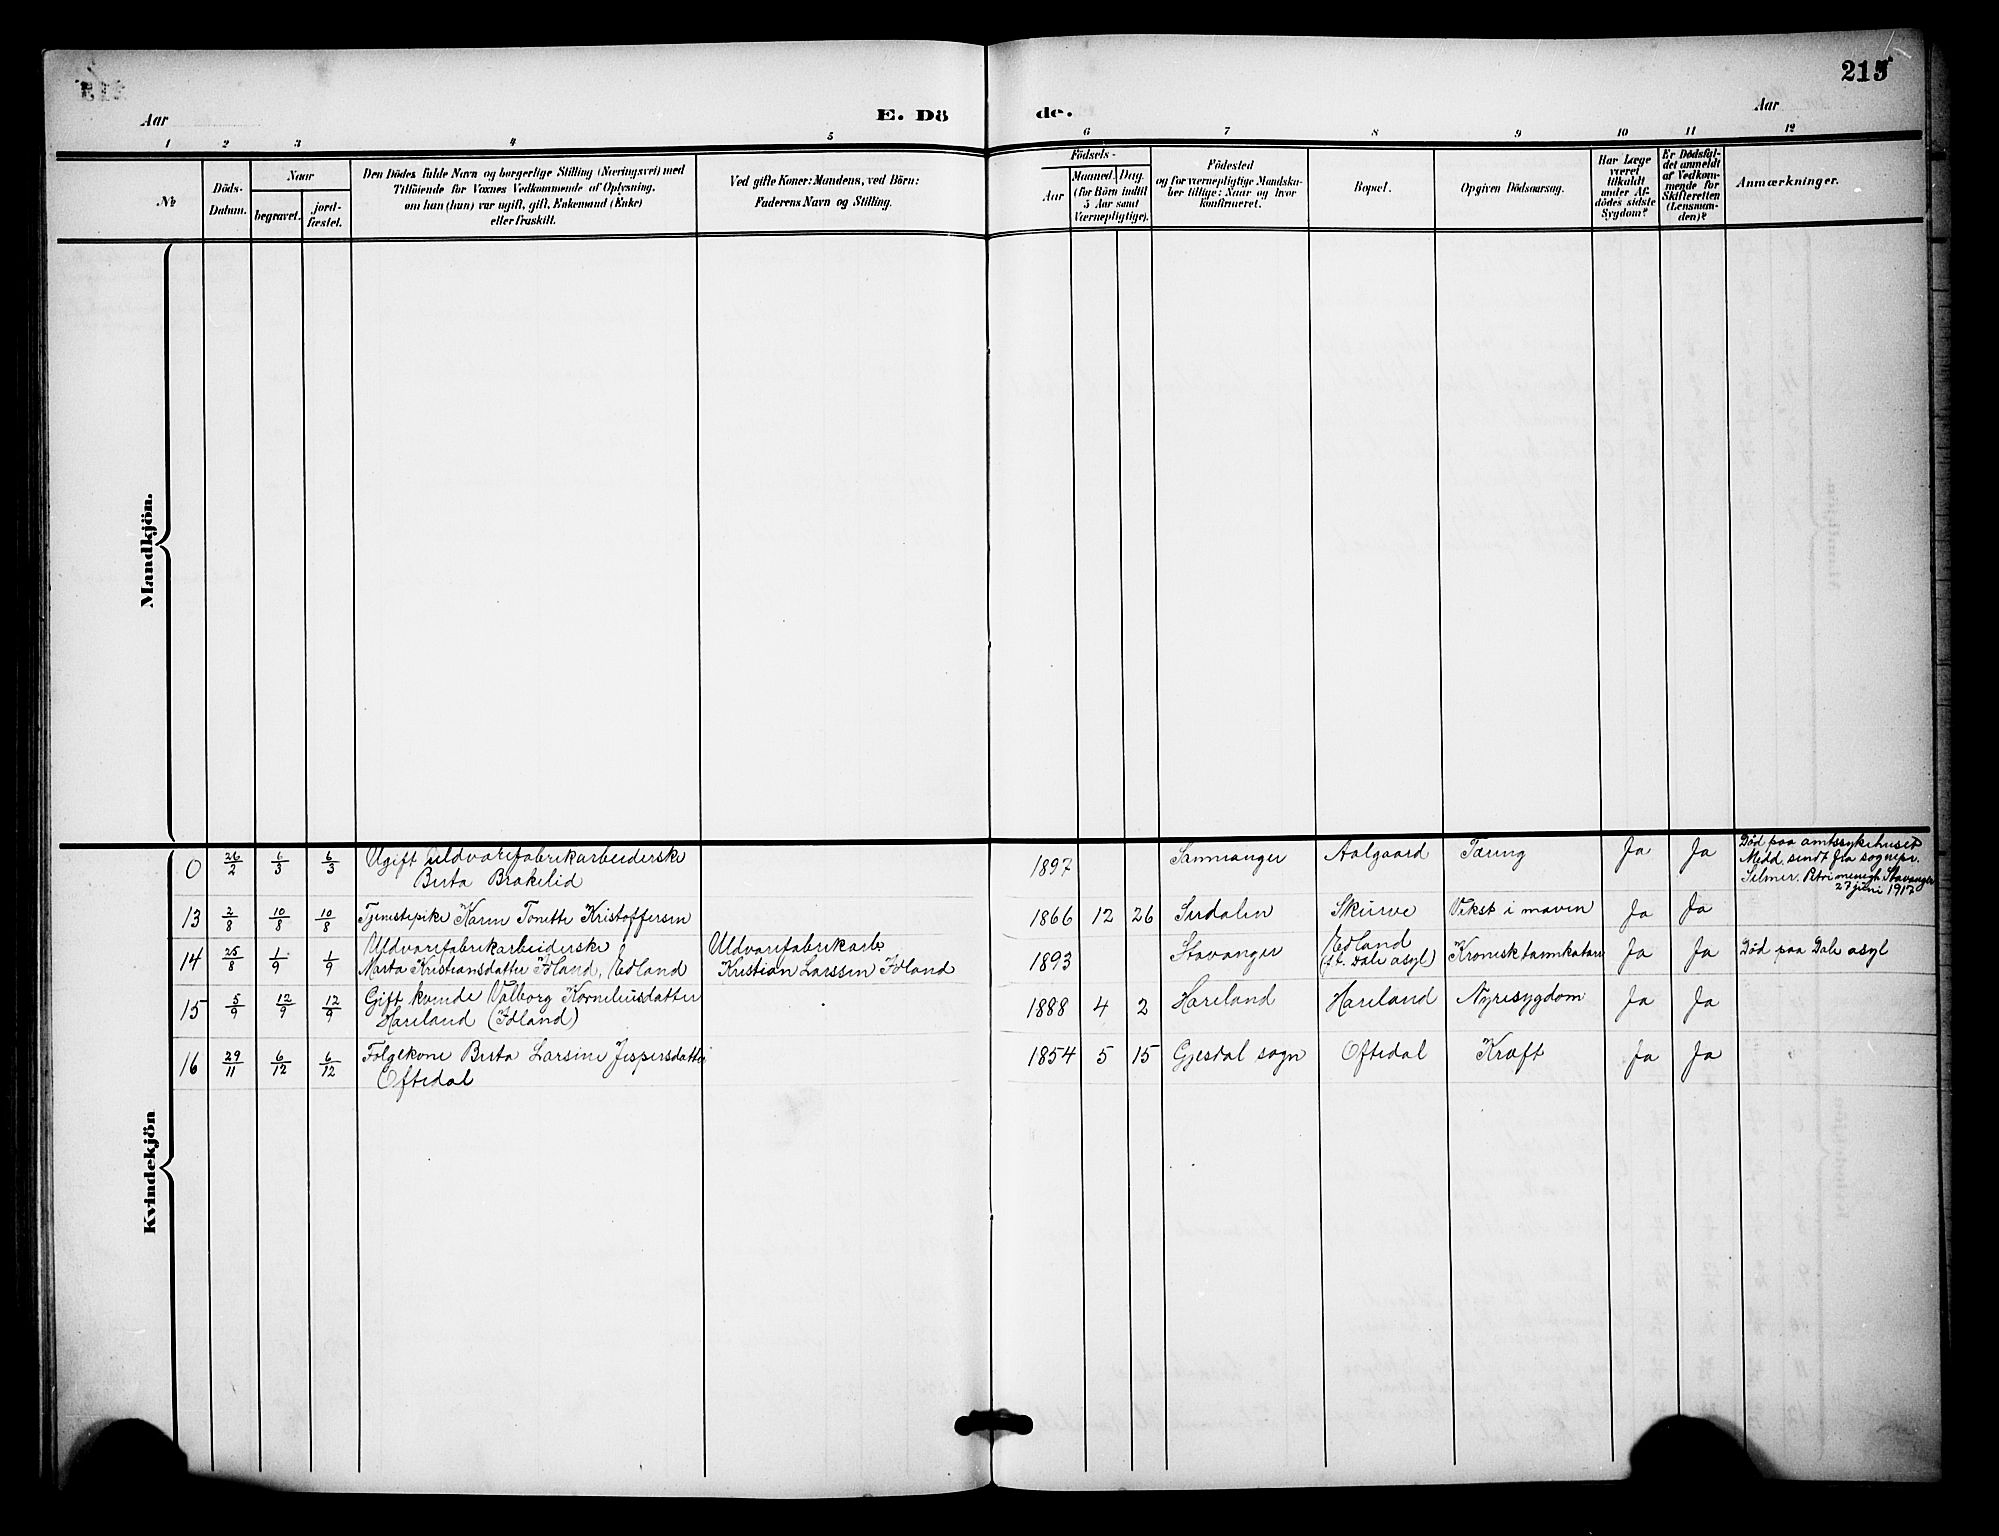 213
Aar
E. Dö
de.
Aar
1 2 3 4 5 6 7 8 9 10 11 12
№
Döds-
Datum.
Naar
begravet.
jord-
fæstet.
Den Dödes fulde Navn og borgerlige Stilling (Næringsvei) med
Tilföiende for Voxnes Vedkommende af Oplysning,
om han (hun) var ugift, gift, Enkemand (Enke)
eller fraskilt.
Ved gifte Koner: Mandens, ved Börn:
Faderens Navn og Stilling.
Födsels-
Aar
Maaned. Dag.
(for Börn indtil
5 Aar samt
Værnepligtige).
Födested
og for værnepligtige Mandska-
ber tillige: Naar og hvor
konfirmeret.
Bopæl.
Opgiven Dödsaarsag.
Har Læge
været
tilkaldt
under Af-
dödes sidste
Sygdom?
Er Dödsfal-
det anmeldt
af Vedkom-
mende for
Skifteretten
(Lensman-
den)?
Anmærkninger.
Mandkjön.
Kvindekjön
0 26/2 6/3 6/3 Ugift uldvarefabrikarbeiderske
Berta Brakelid
1897 Samnanger Aalgaard Tæring Ja Ja
Död paa amtssykehuset
Medd. sendt fra sognepr.
Selmer, Petri menigh Stavanger
27 juni 1917
13 2/8 10/8 10/8 Tjenestepike Karen Tonette Kristoffersen
1866 12 26 Sirdalen Skurve Vekst i maven Ja Ja
14 25/8 1/9 1/9 Uldvarefabrikarbeiderske
Marta Kristiansdatter Idland, Edland
Uldvarefabrikarb.
Kristian Larssen Idland
1893 Stavanger Edland
(f.t. Dale asyl) Kronisk tarmkatarr Ja Ja Död paa Dale asyl
15 5/9 12/9 12/9 Gift kvinde Valborg Korneliusdatter
Hareland (Idland)
1888 4 2 Hareland Hareland Nyresygdom Ja Ja
16 29/11 6/12 6/12 Folgekone Berta Larsine Jespersdatter
Oftedal
1854 5 15 Gjesdal sogn Oftedal Kræft Ja Ja